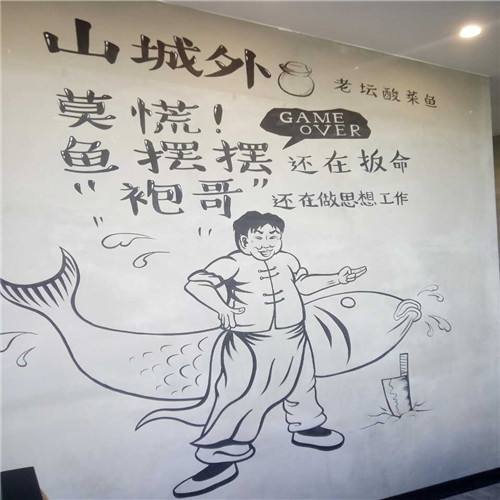 山城外
老坛酸菜鱼
莫慌！
GAME
OVER
鱼摆摆还在扳命
“袍哥”还在做思想工作